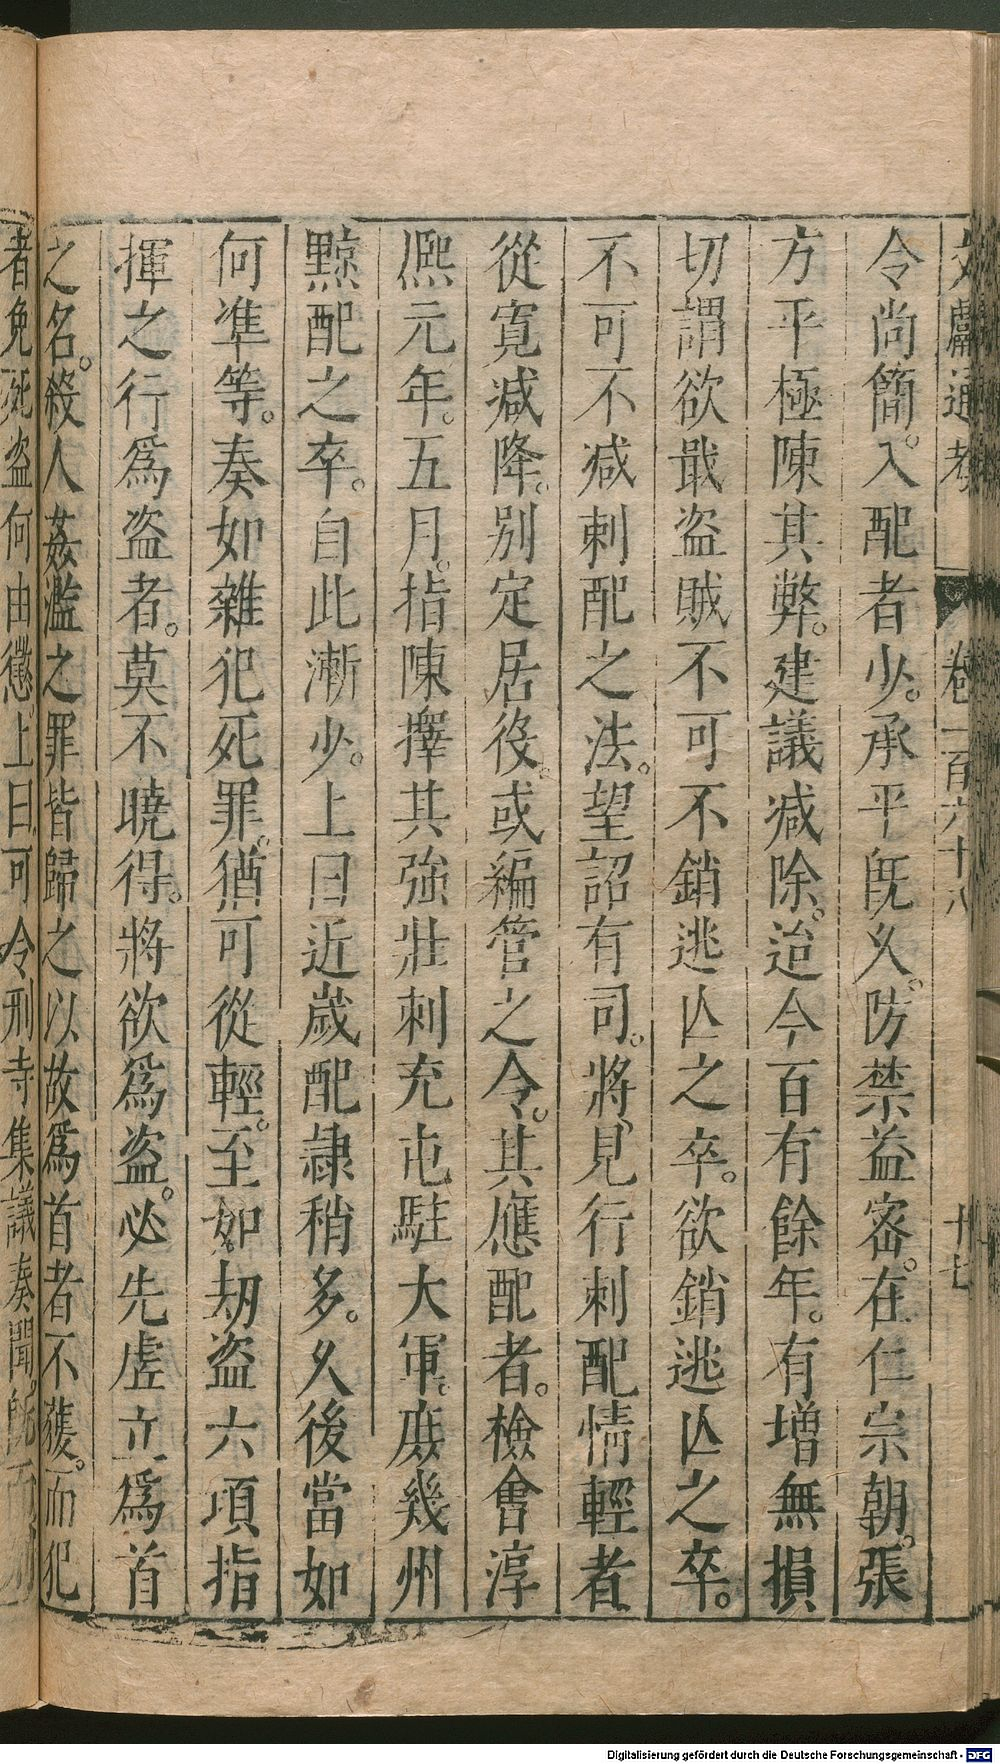 文獻通考 卷一百六十八 十七
令尚簡。入配者少。承平旣久。防禁益密。在仁宗朝。張
方平極陳其弊。建議减除。迨今百有餘年。有增無損
切謂欲戢盗賊不可不銷逃亡之卒。欲銷逃亡之卒。
不可不减刺配之法。望詔有司。將見行刺配情輕者
從寛减降。别定居役。或編管之令。其應配者。檢會淳
熈元年。五月。指陳擇其強壯刺充屯駐大軍。庶幾州
黥配之卒。自此漸少。上曰近歲配隷稍多。久後當如
何準等。奏如雜犯死罪。猶可從輕。至如刼盗六項指
揮之行爲盗者。莫不曉得。將欲爲盗。必先虚立爲首
之名。殺人姦濫之罪皆歸之以故爲首者不獲。而犯
者免死盗何由懲上曰可令刑寺集議奏聞。旣而
Digitalisierung gefördert durch die Deutsche Forschungsgemeinschaft - DFG